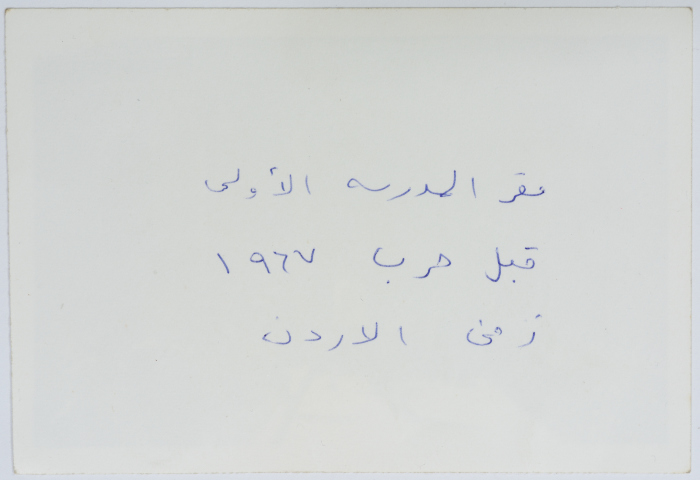 مقر المدرسه الأولى
قبل حرب ١٩٦٧
زمن الاردن